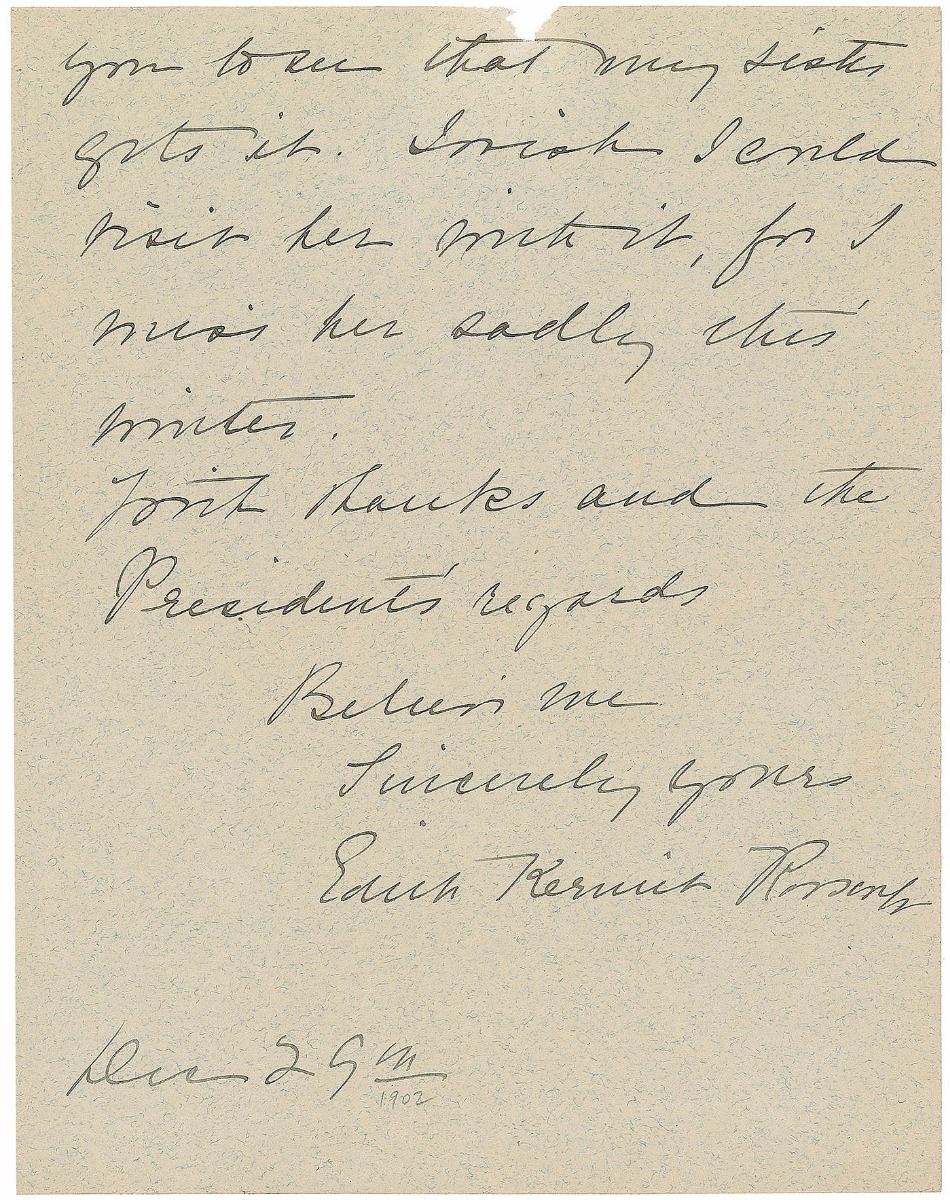 you to see that my sister
gets it. I wish I could
visit her with it, for I
miss her sadly this
winter.
With thanks and the
President's regards
Believe me
Sincerely yours
Edith Kermit Roosevelt
Dec 29th
1902